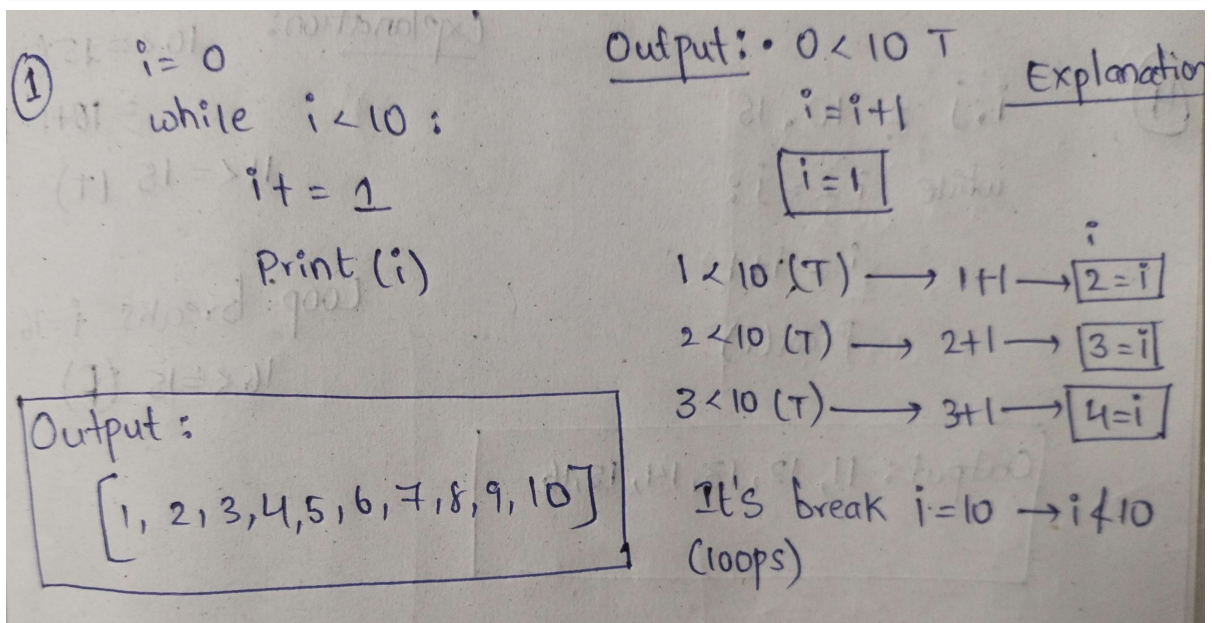 ①
i = 0
while i < 10 :
i + = 1
Print (i)
Output :
[1, 2, 3, 4, 5, 6, 7, 8, 9, 10]
Output : • 0 < 10 T
Explanation
i = i + 1
i = 1
i
1 < 10 (T) → 1+1 → 2 = i
2 < 10 (T) → 2+1 → 3 = i
3 < 10 (T) → 3+1 → 4 = i
It's break i = 10 → i ≮ 10
(loops)